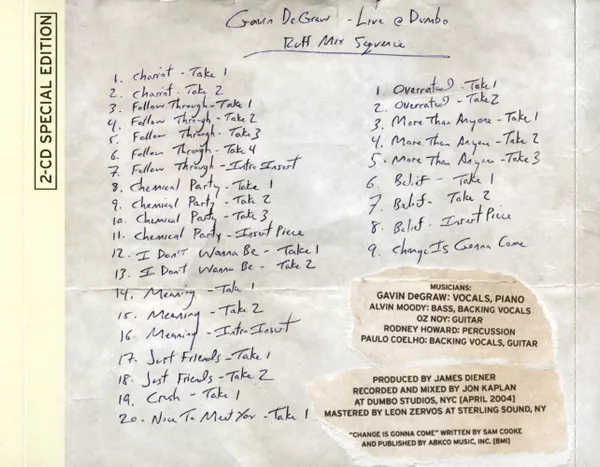 2-CD SPECIAL EDITION
Gavin DeGraw - Live @ Dumbo
Ruff Mix Sequence
1. Chariot - Take 1
2. Chariot - Take 2
3. Follow Through - Take 1
4. Follow Through - Take 2
5. Follow Through - Take 3
6. Follow Through - Take 4
7. Follow Through - Intro Insert
8. Chemical Party - Take 1
9. Chemical Party - Take 2
10. Chemical Party - Take 3
11. Chemical Party - Insert Piece
12. I Don't Wanna Be - Take 1
13. I Don't Wanna Be - Take 2
14. Meaning - Take 1
15. Meaning - Take 2
16. Meaning - Intro Insert
17. Just Friends - Take 1
18. Just Friends - Take 2
19. Crush - Take 1
20. Nice To Meet You - Take 1
1. Overrated - Take 1
2. Overrated - Take 2
3. More Than Anyone - Take 1
4. More Than Anyone - Take 2
5. More Than Anyone - Take 3
6. Belief - Take 1
7. Belief - Take 2
8. Belief - Insert Piece
9. Change Is Gonna Come
MUSICIANS:
GAVIN DeGRAW: VOCALS, PIANO
ALVIN MOODY: BASS, BACKING VOCALS
OZ NOY: GUITAR
RODNEY HOWARD: PERCUSSION
PAULO COELHO: BACKING VOCALS, GUITAR
PRODUCED BY JAMES DIENER
RECORDED AND MIXED BY JON KAPLAN
AT DUMBO STUDIOS, NYC [APRIL 2004]
MASTERED BY LEON ZERVOS AT STERLING SOUND, NY
"CHANGE IS GONNA COME" WRITTEN BY SAM COOKE
AND PUBLISHED BY ABKCO MUSIC, INC. [BMI]